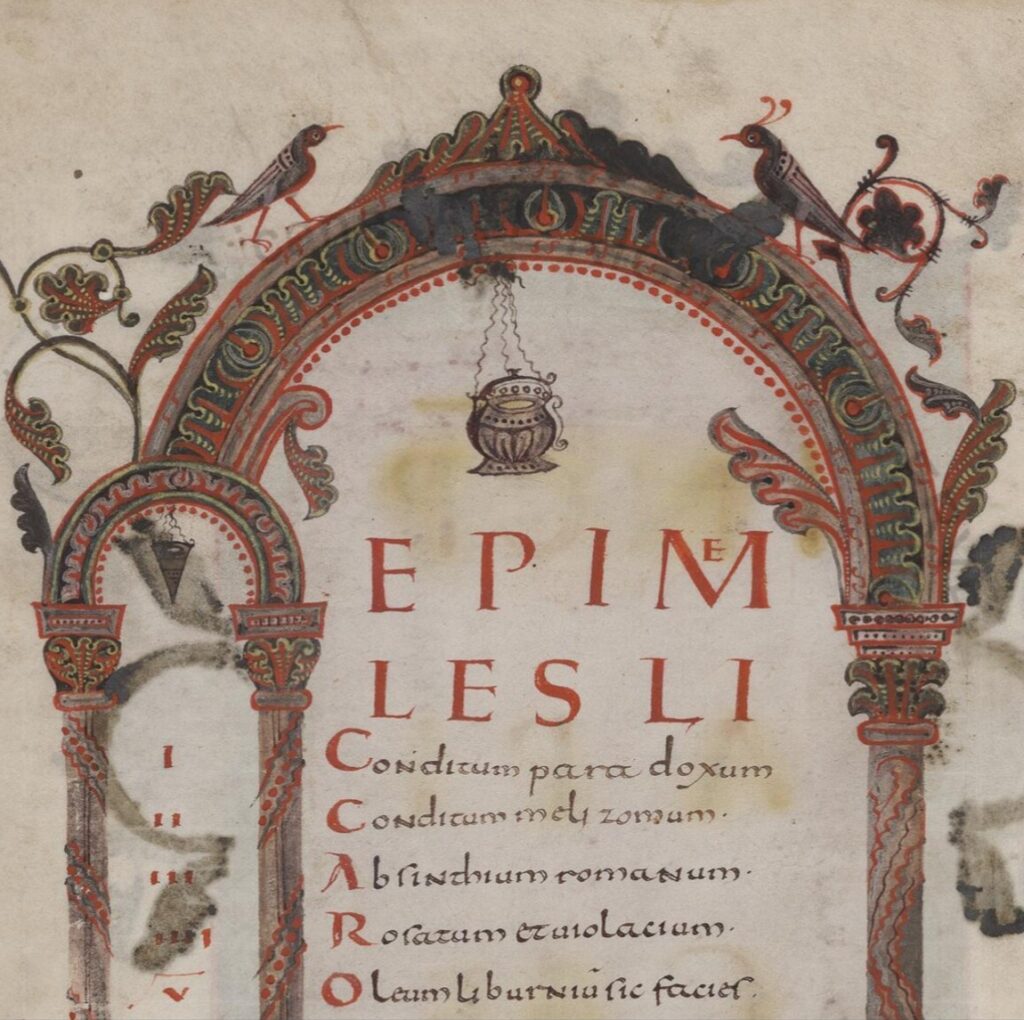 EPIME
LES LI
I Conditum para doxum
II Conditum meli zomum·
III Absinthium romanum·
IIII Rosatum et uiolacium·
V Oleum liburniū sic facies·